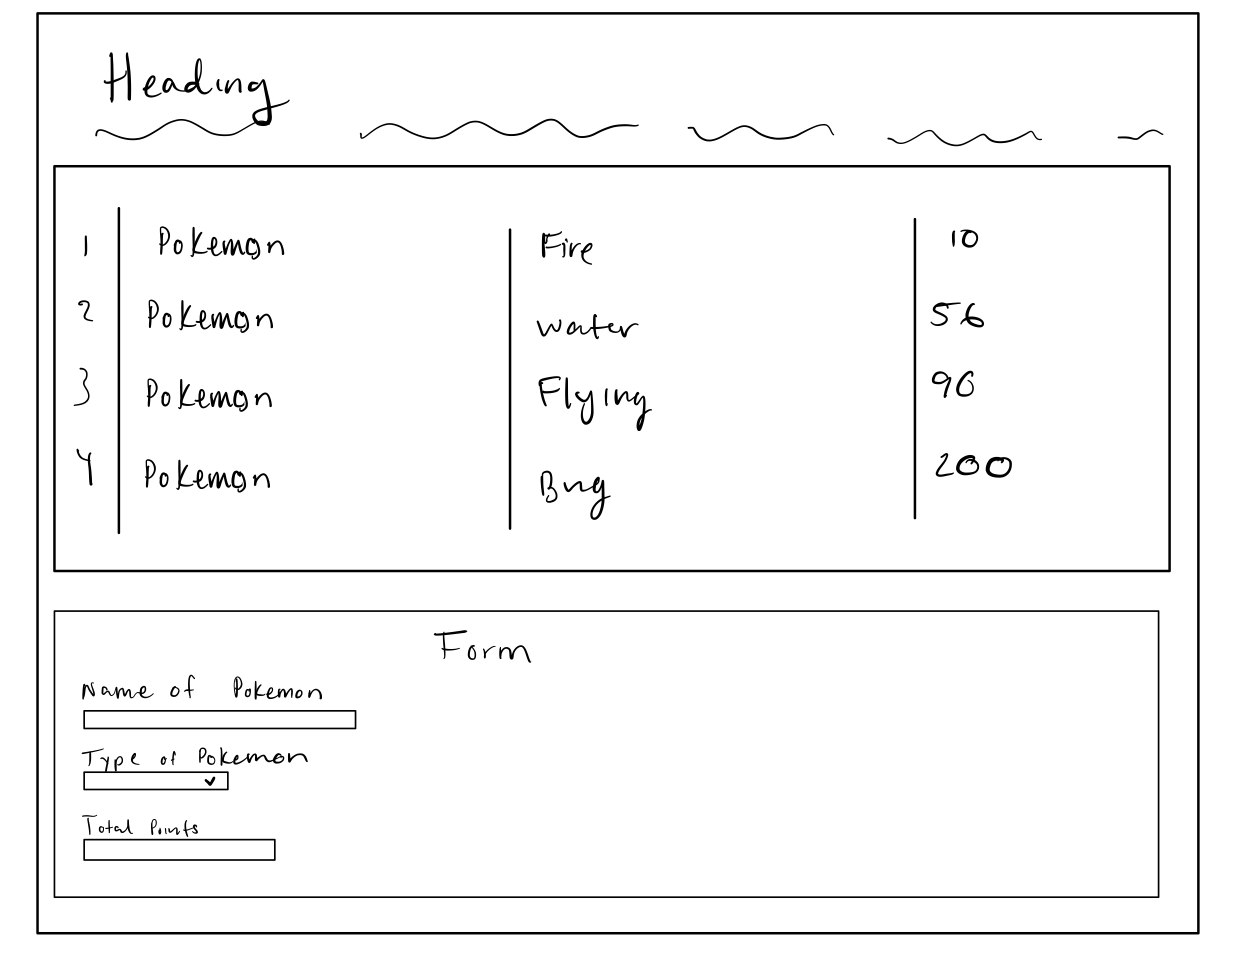 Heading
1 Pokemon Fire 10
2 Pokemon water 56
3 Pokemon Flying 90
4 Pokemon Bug 200
Form
Name of Pokemon
Type of Pokemon
Total Points